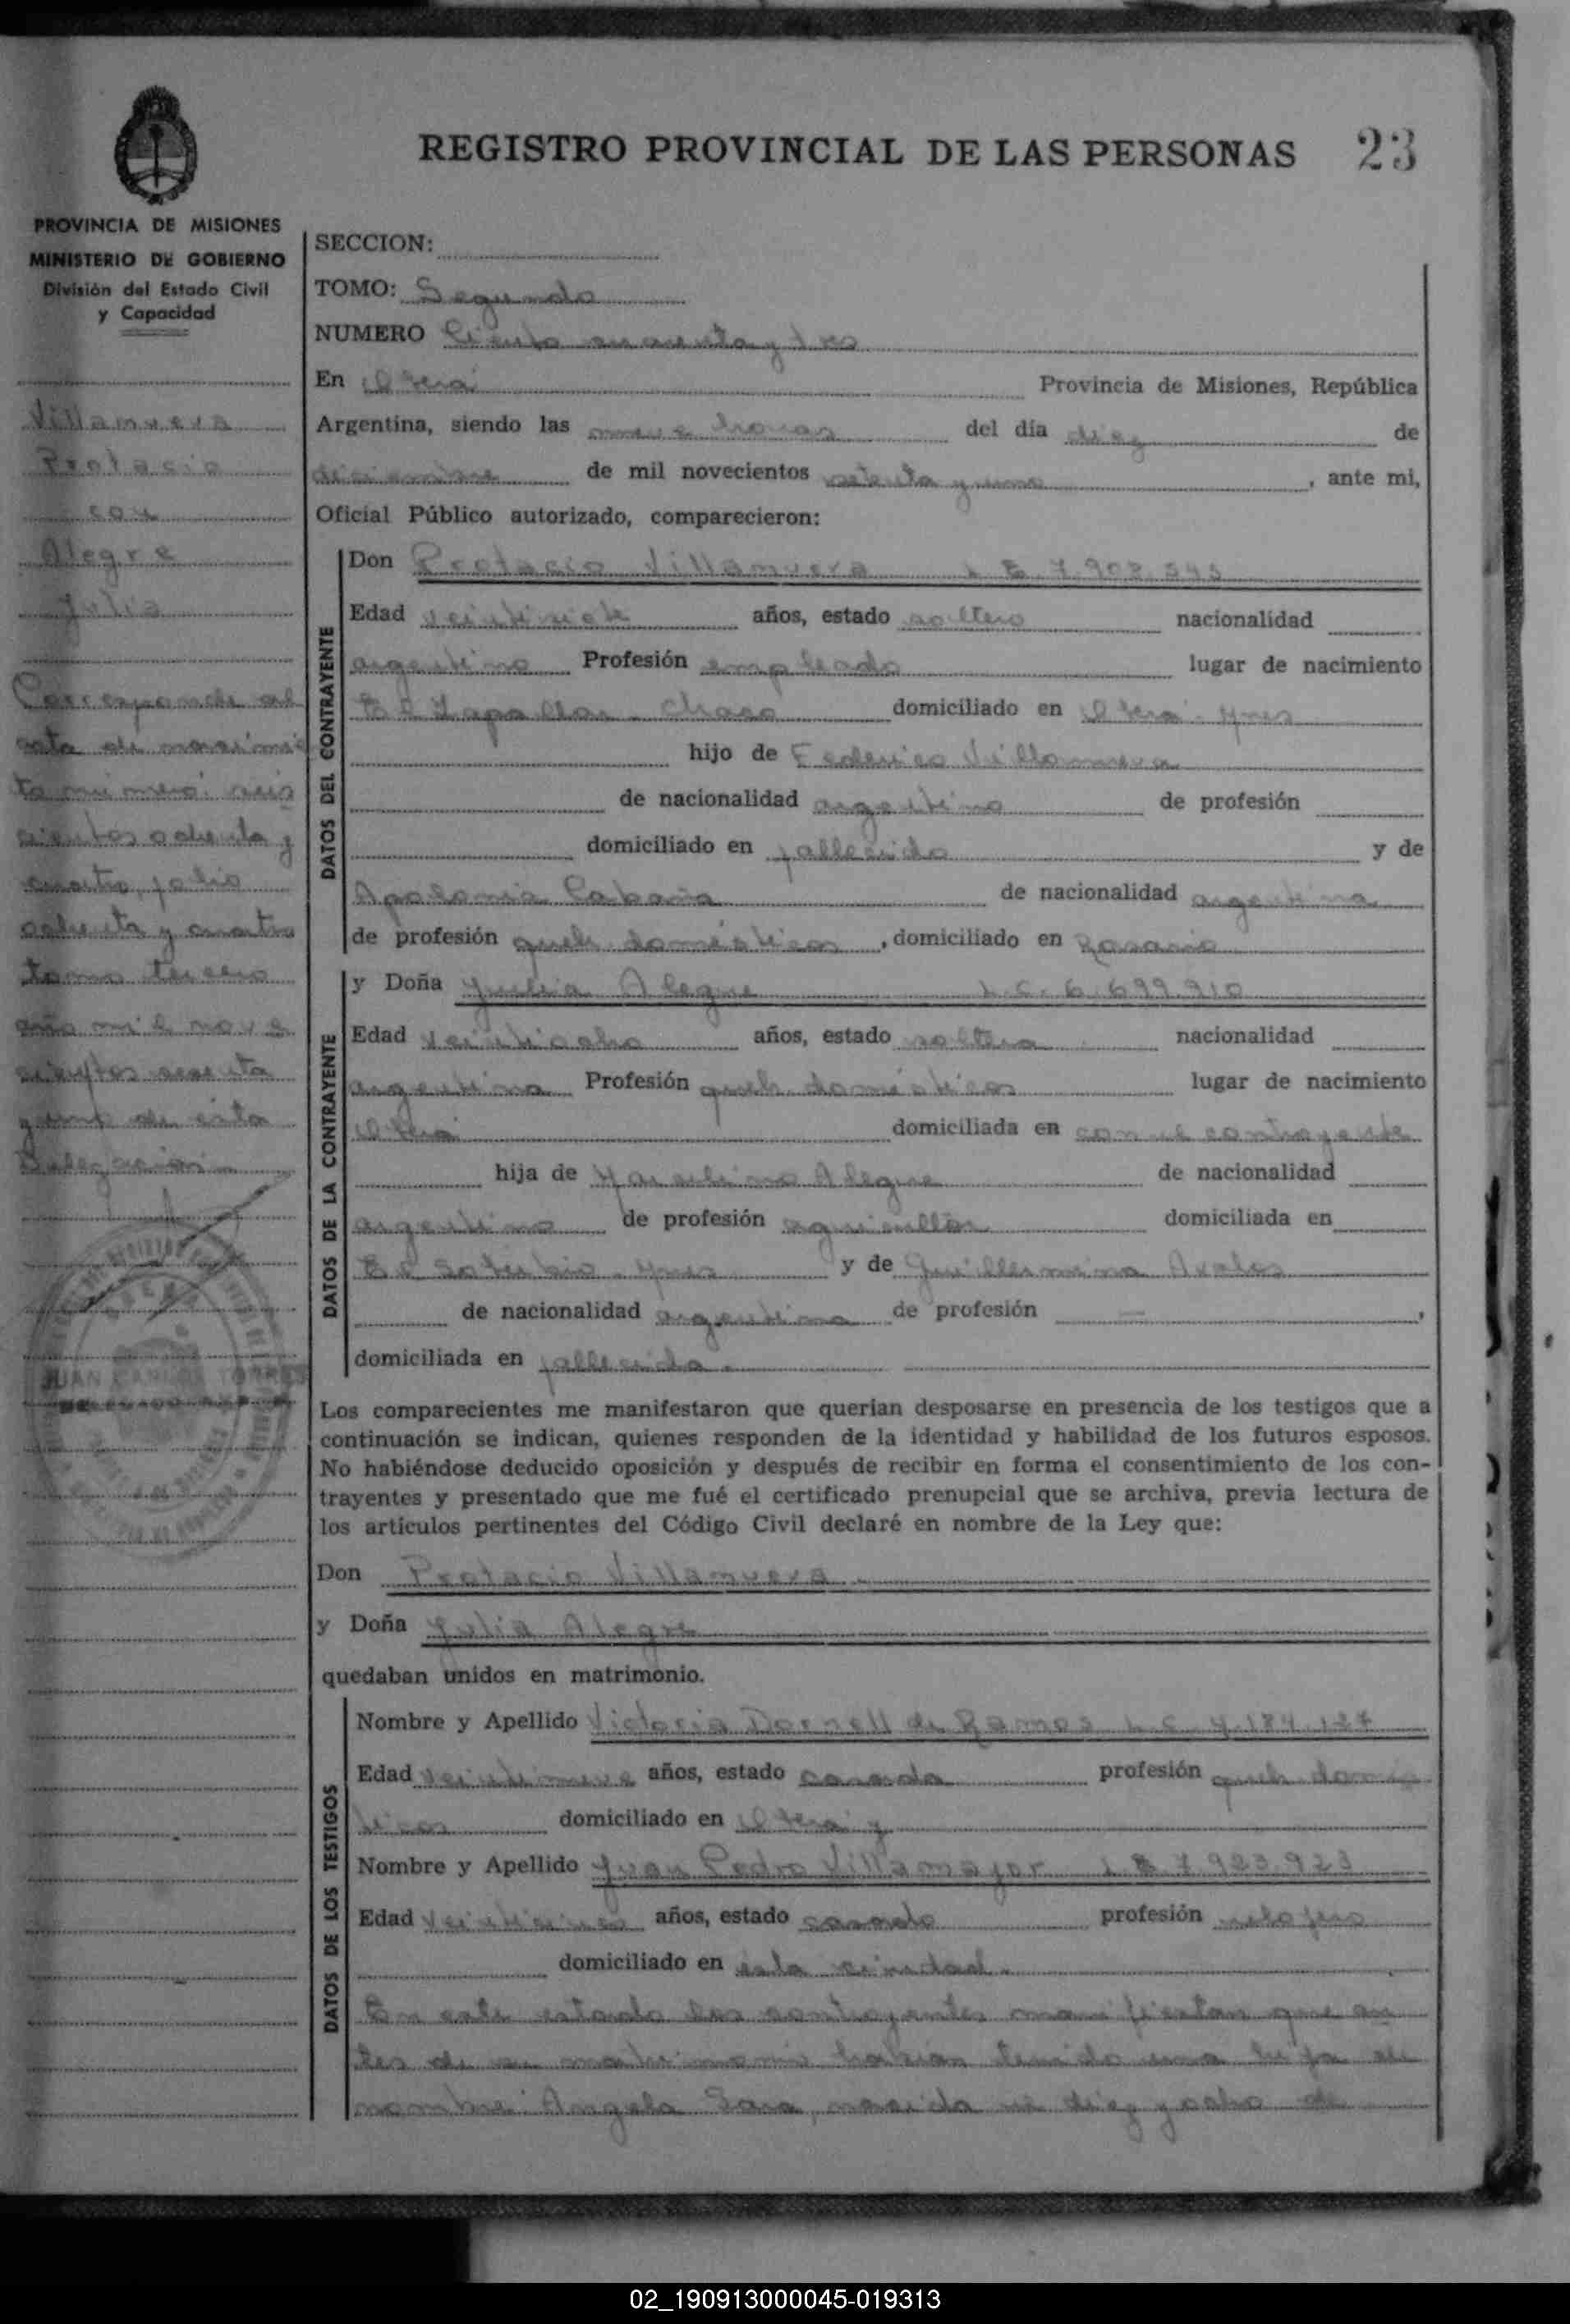 REGISTRO PROVINCIAL DE LAS PERSONAS 23
PROVINCIA DE MISIONES
MINISTERIO DE GOBIERNO
División del Estado Civil
y Capacidad
Villanueva
Protacio
con
Alegre
Julia
Corresponde al
acta de nacimien
to número: seis
cientos ochenta y
cuatro, folio
ochenta y cuatro
tomo tercero
año mil nove
cientos sesenta
y uno de esta
Delegación
JUAN CARLOS TORRES
SECCION:
TOMO: Segundo
NUMERO Ciento cuarenta y tres
En Oberá Provincia de Misiones, República
Argentina, siendo las nueve horas del día diez de
diciembre de mil novecientos setenta y uno, ante mi,
Oficial Público autorizado, comparecieron:
DATOS DEL CONTRAYENTE
Don Protacio Villanueva L E 7.902.545
Edad veintisiete años, estado soltero nacionalidad
argentino Profesión empleado lugar de nacimiento
El Zapallar - Chaco domiciliado en Oberá - Mnes
hijo de Federico Villanueva
de nacionalidad argentino de profesión
domiciliado en fallecido y de
Apolonia Cabaña de nacionalidad argentina
de profesión queh. domésticos, domiciliado en Rosario
DATOS DE LA CONTRAYENTE
y Doña Julia Alegre L.C. 6.699.910
Edad veintiocho años, estado soltera nacionalidad
argentina Profesión queh. domésticos lugar de nacimiento
Oberá domiciliada en con el contrayente
hija de Marcelino Alegre de nacionalidad
argentino de profesión agricultor domiciliada en
El Soberbio - Mnes y de Guillermina Avalos
de nacionalidad argentina de profesión —,
domiciliada en fallecida.
Los comparecientes me manifestaron que querían desposarse en presencia de los testigos que a
continuación se indican, quienes responden de la identidad y habilidad de los futuros esposos.
No habiéndose deducido oposición y después de recibir en forma el consentimiento de los con-
trayentes y presentado que me fué el certificado prenupcial que se archiva, previa lectura de
los artículos pertinentes del Código Civil declaré en nombre de la Ley que:
Don Protacio Villanueva
y Doña Julia Alegre
quedaban unidos en matrimonio.
DATOS DE LOS TESTIGOS
Nombre y Apellido Victoria Dornell de Ramos L C 4.184.127
Edad veintinueve años, estado casada profesión queh. domés
ticos domiciliado en Oberá y
Nombre y Apellido Juan Pedro Villamayor L E 7.923.923
Edad veinticinco años, estado casado profesión relojero
domiciliado en esta ciudad.
En este estado los contrayentes manifiestan que an
tes de su matrimonio habían tenido una hija de
nombre: Angela Sara, nacida el diez y ocho de
02_190913000045-019313